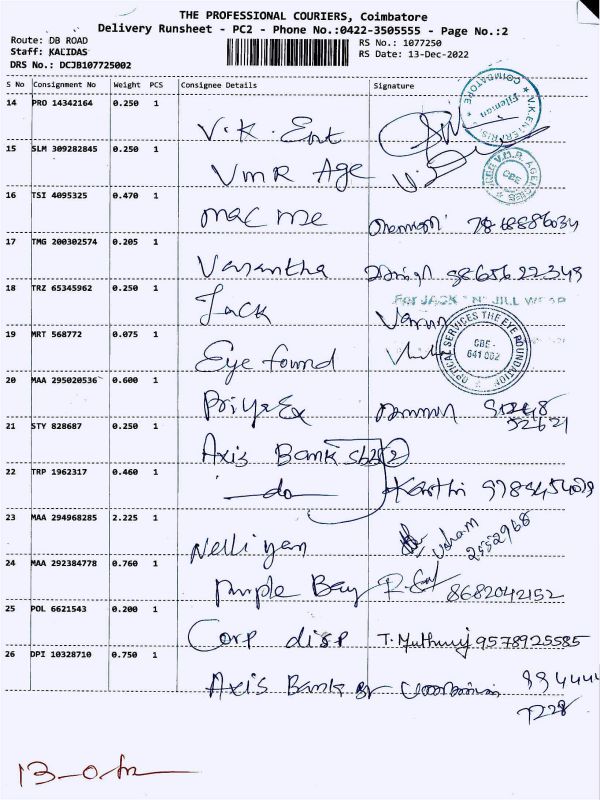 THE PROFESSIONAL COURIERS, Coimbatore
Delivery Runsheet - PC2 - Phone No.:0422-3505555 - Page No.:2
Route: DB ROAD
Staff: KALIDAS
DRS No.: DCJB107725002
RS No.: 1077250
RS Date: 13-Dec-2022
S No Consignment No Weight PCS Consignee Details Signature
14 PRO 14342164 0.250 1 V.K. Ent
V.K. ENTERPRIS COIMBATORE
15 SLM 309282845 0.250 1 VMR Age
V.M.R. AGENCIES CBE
16 TSI 4095325 0.470 1 Mac me
17 TMG 200302574 0.205 1 Vasantha 98656 22349
18 TRZ 65345962 0.250 1 Jack
For JACK "N" JILL WEAR
19 MRT 568772 0.075 1 Eye found
OPTICAL SERVICES THE EYE FOUNDATION CBE- 641 002
20 MAA 295020536 0.600 1 Priya Ex
21 STY 828687 0.250 1 Axis Bank
22 TRP 1962317 0.460 1 do Karthi
23 MAA 294968285 2.225 1 Nelliyan 2552968
24 MAA 292384778 0.760 1 Purple Bay 8682042152
25 POL 6621543 0.200 1 Corp disp T. Muthuraj 9578925585
26 DPI 10328710 0.750 1 Axis Bank